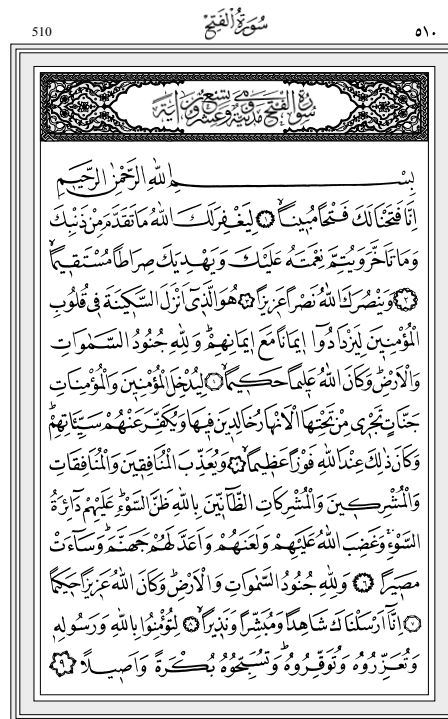 510 سُورَةُ الْفَتْحِ ٥١٠
سُورَةُ الْفَتْحِ مَدَنِيَّةٌ وَهِيَ تِسْعٌ وَعِشْرُونَ اٰيَةً
بِسْمِ اللّٰهِ الرَّحْمٰنِ الرَّحٖيمِ
اِنَّا فَتَحْنَا لَكَ فَتْحًا مُبٖينًاۙ ﴿١﴾ لِيَغْفِرَ لَكَ اللّٰهُ مَا تَقَدَّمَ مِنْ ذَنْبِكَ
وَمَا تَاَخَّرَ وَيُتِمَّ نِعْمَتَهُ عَلَيْكَ وَيَهْدِيَكَ صِرَاطًا مُسْتَقٖيمًاۙ
﴿٢﴾ وَيَنْصُرَكَ اللّٰهُ نَصْرًا عَزٖيزًا ﴿٣﴾ هُوَ الَّذٖٓي اَنْزَلَ السَّكٖينَةَ فٖي قُلُوبِ
الْمُؤْمِنٖينَ لِيَزْدَادُٓوا اٖيمَانًا مَعَ اٖيمَانِهِمْۜ وَلِلّٰهِ جُنُودُ السَّمٰوَاتِ
وَالْاَرْضِۜ وَكَانَ اللّٰهُ عَلٖيمًا حَكٖيمًاۙ ﴿٤﴾ لِيُدْخِلَ الْمُؤْمِنٖينَ وَالْمُؤْمِنَاتِ
جَنَّاتٍ تَجْرٖي مِنْ تَحْتِهَا الْاَنْهَارُ خَالِدٖينَ فٖيهَا وَيُكَفِّرَ عَنْهُمْ سَيِّـَٔاتِهِمْۜ
وَكَانَ ذٰلِكَ عِنْدَ اللّٰهِ فَوْزًا عَظٖيمًاۙ ﴿٥﴾ وَيُعَذِّبَ الْمُنَافِقٖينَ وَالْمُنَافِقَاتِ
وَالْمُشْرِكٖينَ وَالْمُشْرِكَاتِ الظَّٓانّٖينَ بِاللّٰهِ ظَنَّ السَّوْءِۜ عَلَيْهِمْ دَٓائِرَةُ
السَّوْءِۚ وَغَضِبَ اللّٰهُ عَلَيْهِمْ وَلَعَنَهُمْ وَاَعَدَّ لَهُمْ جَهَنَّمَۜ وَسَٓاءَتْ
مَصٖيرًا ﴿٦﴾ وَلِلّٰهِ جُنُودُ السَّمٰوَاتِ وَالْاَرْضِۜ وَكَانَ اللّٰهُ عَزٖيزًا حَكٖيمًا
﴿٧﴾ اِنَّٓا اَرْسَلْنَاكَ شَاهِدًا وَمُبَشِّرًا وَنَذٖيرًاۙ ﴿٨﴾ لِتُؤْمِنُوا بِاللّٰهِ وَرَسُولِهٖ
وَتُعَزِّرُوهُ وَتُوَقِّرُوهُۜ وَتُسَبِّحُوهُ بُكْرَةً وَاَصٖيلًا ﴿٩﴾